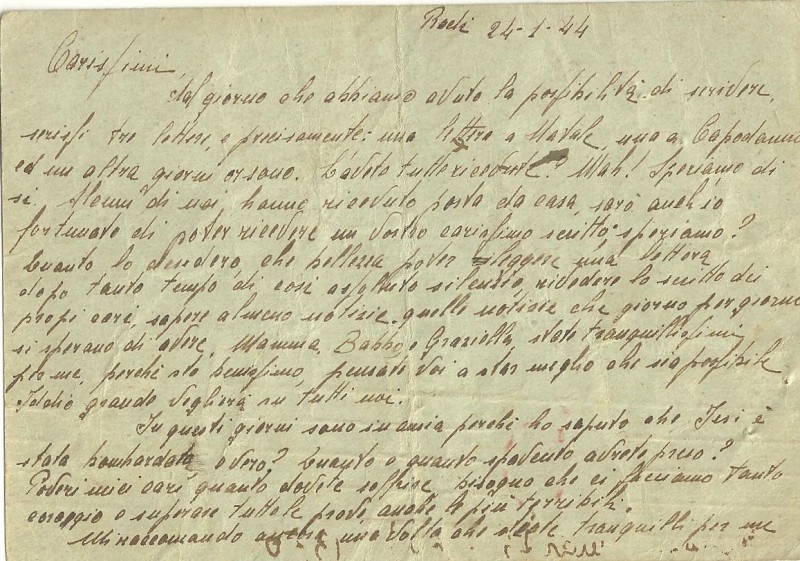 Rodi 24-1-44
Carissimi
Dal giorno che abbiamo avuto la possibilità di scrivere,
scrissi tre lettere, e precisamente: una lettra a Natale, una a Capodanno
ed un altra giorni or sono. L'avete tutte ricevute? Mah! Speriamo di
si. Alcuni di noi, hanno ricevuto posta da casa, sarò anch'io
fortunato di poter ricevere un vostro carissimo scritto, speriamo?
Quanto lo desidero, che bellezza poter leggere una lettera
dopo tanto tempo di così assoluto silenzio, rivedere lo scritto dei
propi cari, sapere almeno notizie. quelle notizie che giorno per giorno
si sperano di avere. Mamma, Babbo, e Graziella, state tranquillissimi
per me, perchè sto benissimo, pensate voi a star meglio che sia possibile
Iddio grande veglierà su tutti noi.
In questi giorni sono in ansia perchè ho saputo che Jesi è
stata bombardata è vero? Quanto e quanto spavento avrete preso?
Poveri miei cari quanto dovete soffrire, bisogna che ci facciamo tanto
coraggio e superare tutte le prove anche le più terribili.
Mi raccomando ancora una volta che siate tranquilli per me